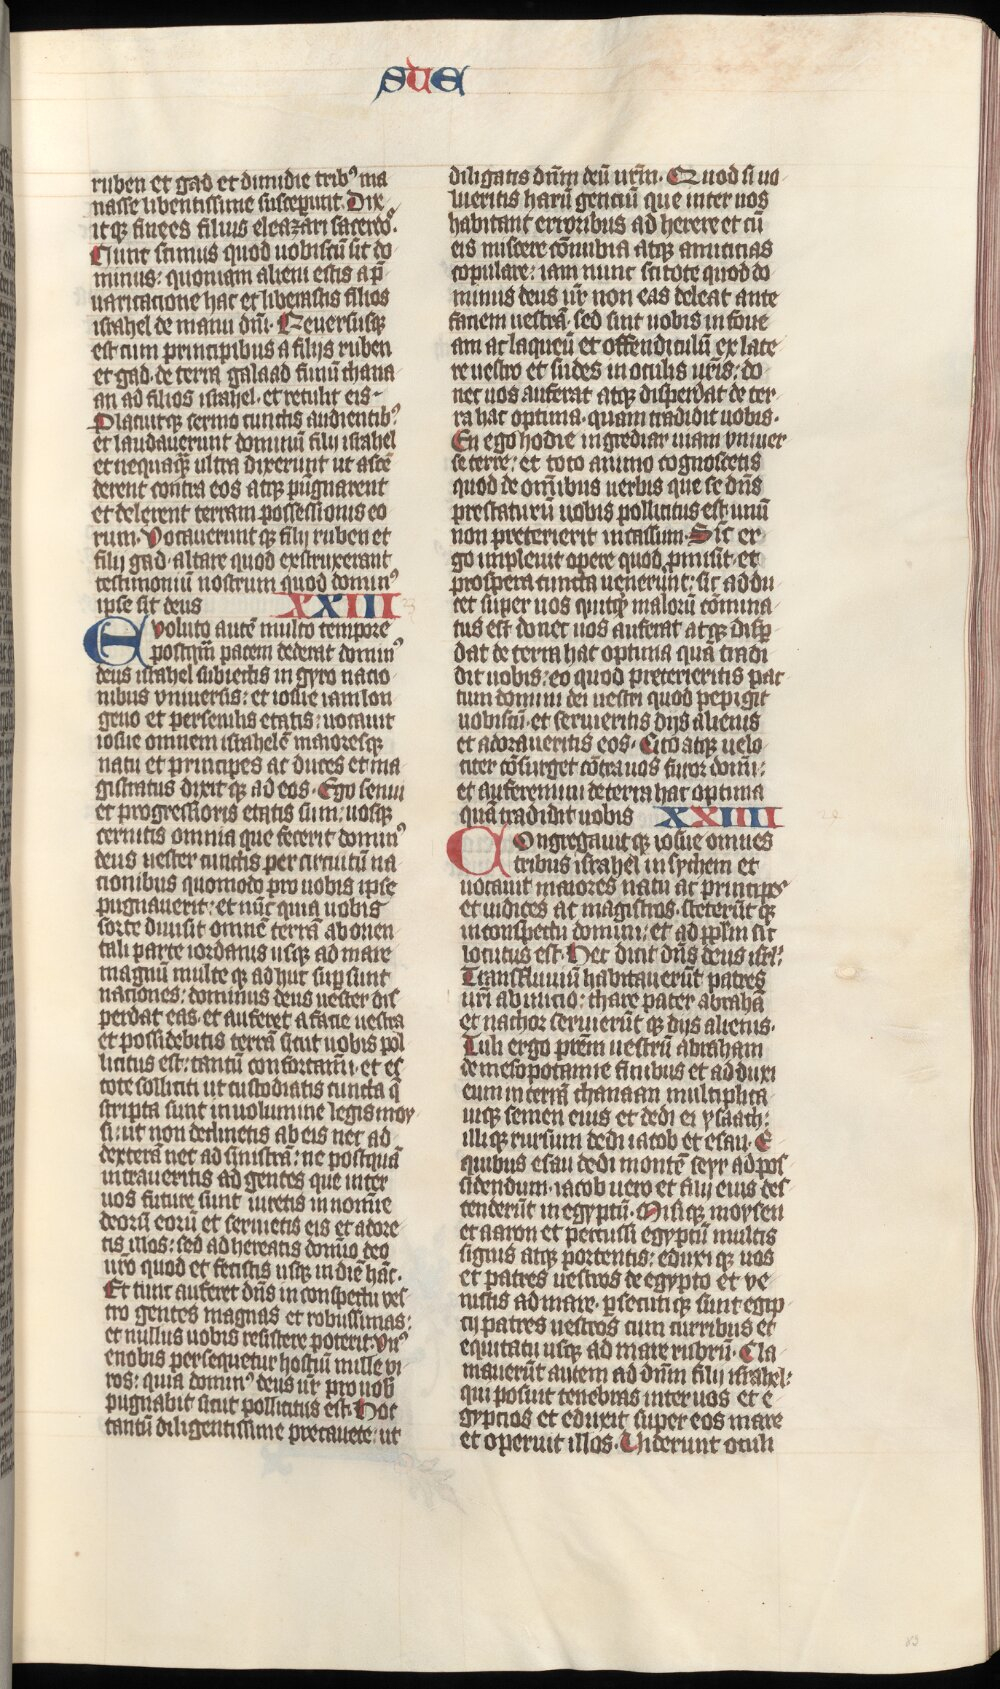 SUE
ruben et gad et dimidie tribꝰ ma
nasse libentissime susceperunt. Dix
itqꝫ finees filius eleazari sacerdos.
Nunc scimus quod nobiscū sit do
minus: quoniam alieni estis a p̄
uaricacione hac et liberastis filios
israhel de manu dn̄i. Reuersusqꝫ
est cum principibus a filijs ruben
et gad. de terra galaad finiū chana
an ad filios israhel. et retulit eis.
Placuitqꝫ sermo cunctis audientibꝰ
et laudauerunt dominū filii israhel
et nequaqꝫ ultra dixerunt ut ascē
derent contra eos atqꝫ pugnarent
et delerent terram possessionis eo
rum. Vocauerunt qꝫ filij ruben et
filij gad. altare quod exstruxerant
testimoniū nostrum quod dominꝰ
ipse sit deus XXIII 23
Evoluto autē multo tempore
postqm̄ pacem dederat dominꝰ
deus israhel subiectis in gyro nacio
nibus vniuersis: et iosue iam lon
geuo et persenilis etatis: uocauit
iosue omnem israhelē maioresqꝫ
natu et principes ac duces et ma
gistratus dixit qꝫ ad eos. Ego senui
et progressioris etatis sum: uosqꝫ
cernitis omnia que fecerit dominꝰ
deus uester cunctis per circuitū na
cionibus quomodo pro uobis ipse
pugnauerit: et nūc quia uobis
sorte diuisit omnē terrā ab orien
tali parte iordanis usqꝫ ad mare
magnū multe qꝫ adhuc supsunt
naciones: dominus deus uester dis
perdat eas. et auferet a facie uestra
et possidebitis terrā sicut uobis pol
licitus est: tantū confortamī. et es
tote solliciti ut custodiatis cuncta q̄
scripta sunt in uolumine legis moy
si: ut non declinetis ab eis nec ad
dexterā nec ad sinistrā: ne postquā
intraueritis ad gentes que inter
uos future sunt iuretis in nomīe
deorū eorū et seruietis eis et adore
tis illos: sed adhereatis domīo deo
urō quod et fecistis usqꝫ in diē hāc.
Et tunc auferet dn̄s in conspectu ves
tro gentes magnas et robustissimas:
et nullus uobis resistere poterit. Vnꝰ
e uobis persequetur hostiū mille vi
ros: quia dominꝰ deus ur̄ pro uob̄
pugnabit sicut pollicitus est. Hoc
tantū diligentissime precauete: ut
diligatis dn̄m deū urm̄. Quod si uo
lueritis harū genciū que inter uos
habitant erroribus adherere et cū
eis miscere cōnubia atqꝫ amicicias
copulare: iam nunc scitote quod do
minus deus ur̄ non eas deleat ante
faciem uestrā. sed sint uobis in foue
am ac laqueū et offendiculū ex late
re uestro et sudes in oculis uris̄: do
nec uos auferat atqꝫ disperdat de ter
ra hac optima. quam tradidit uobis.
En ego hodie ingrediar uiam vniuer
se terre: et toto animo cognoscetis
quod de om̄ibus uerbis que se dn̄s
prestaturū uobis pollicitus est. unū
non preterierit incassum. Sic̄ er
go impleuit opere quod ꝓmisit. et
prospera cuncta uenerunt: sic addu
cet super uos quicqꝫ malorū cōmina
tus est donec uos auferat atqꝫ disp̄
dat de terra hac optima quā tradi
dit uobis: eo quod preterieritis pac
tum domini dei uestri quod pepigit
uobiscū. et seruieritis dijs alienis
et adoraueritis eos. Cito atqꝫ uelo
citer cōsurget cōtra uos furor domī:
et auferemini de terra hac optima
quā tradidit uobis XXIIII 24
Congregauit qꝫ iosue omnes
tribus israhel in sychem et
uocauit maiores natu ac principes
et iudices ac magistros. steterūt qꝫ
in conspectu domini: et ad ppl̄m sic
locutus est. Hec dicit dn̄s deus isrl̄:
Trans fluuiū habitauerūt patres
urī ab inicio: thare pater abrahā
et nachor seruierūt qꝫ dijs alienis.
Tuli ergo prēm uestrū abraham
de mesopotamie finibus et adduxi
eum in terrā chanaan multiplica
uiqꝫ semen eius et dedi ei ysaach:
illiqꝫ rursum dedi iacob et esau. E
quibus esau dedi montē seyr ad pos
sidendum. iacob uero et filij eius des
cenderūt in egyptū. Misiqꝫ moysen
et aaron et percussi egyptū multis
signis atqꝫ portentis: eduxi qꝫ uos
et patres uestros de egypto et ve
nistis ad mare. ꝑsecuti qꝫ sunt egip
cij patres uestros cum curribus et
equitatu usqꝫ ad mare rubrū. Cla
mauerūt autem ad dn̄m filij israhel:
qui posuit tenebras inter uos et e
gypcios et eduxit super eos mare
et operuit illos. Viderunt oculi